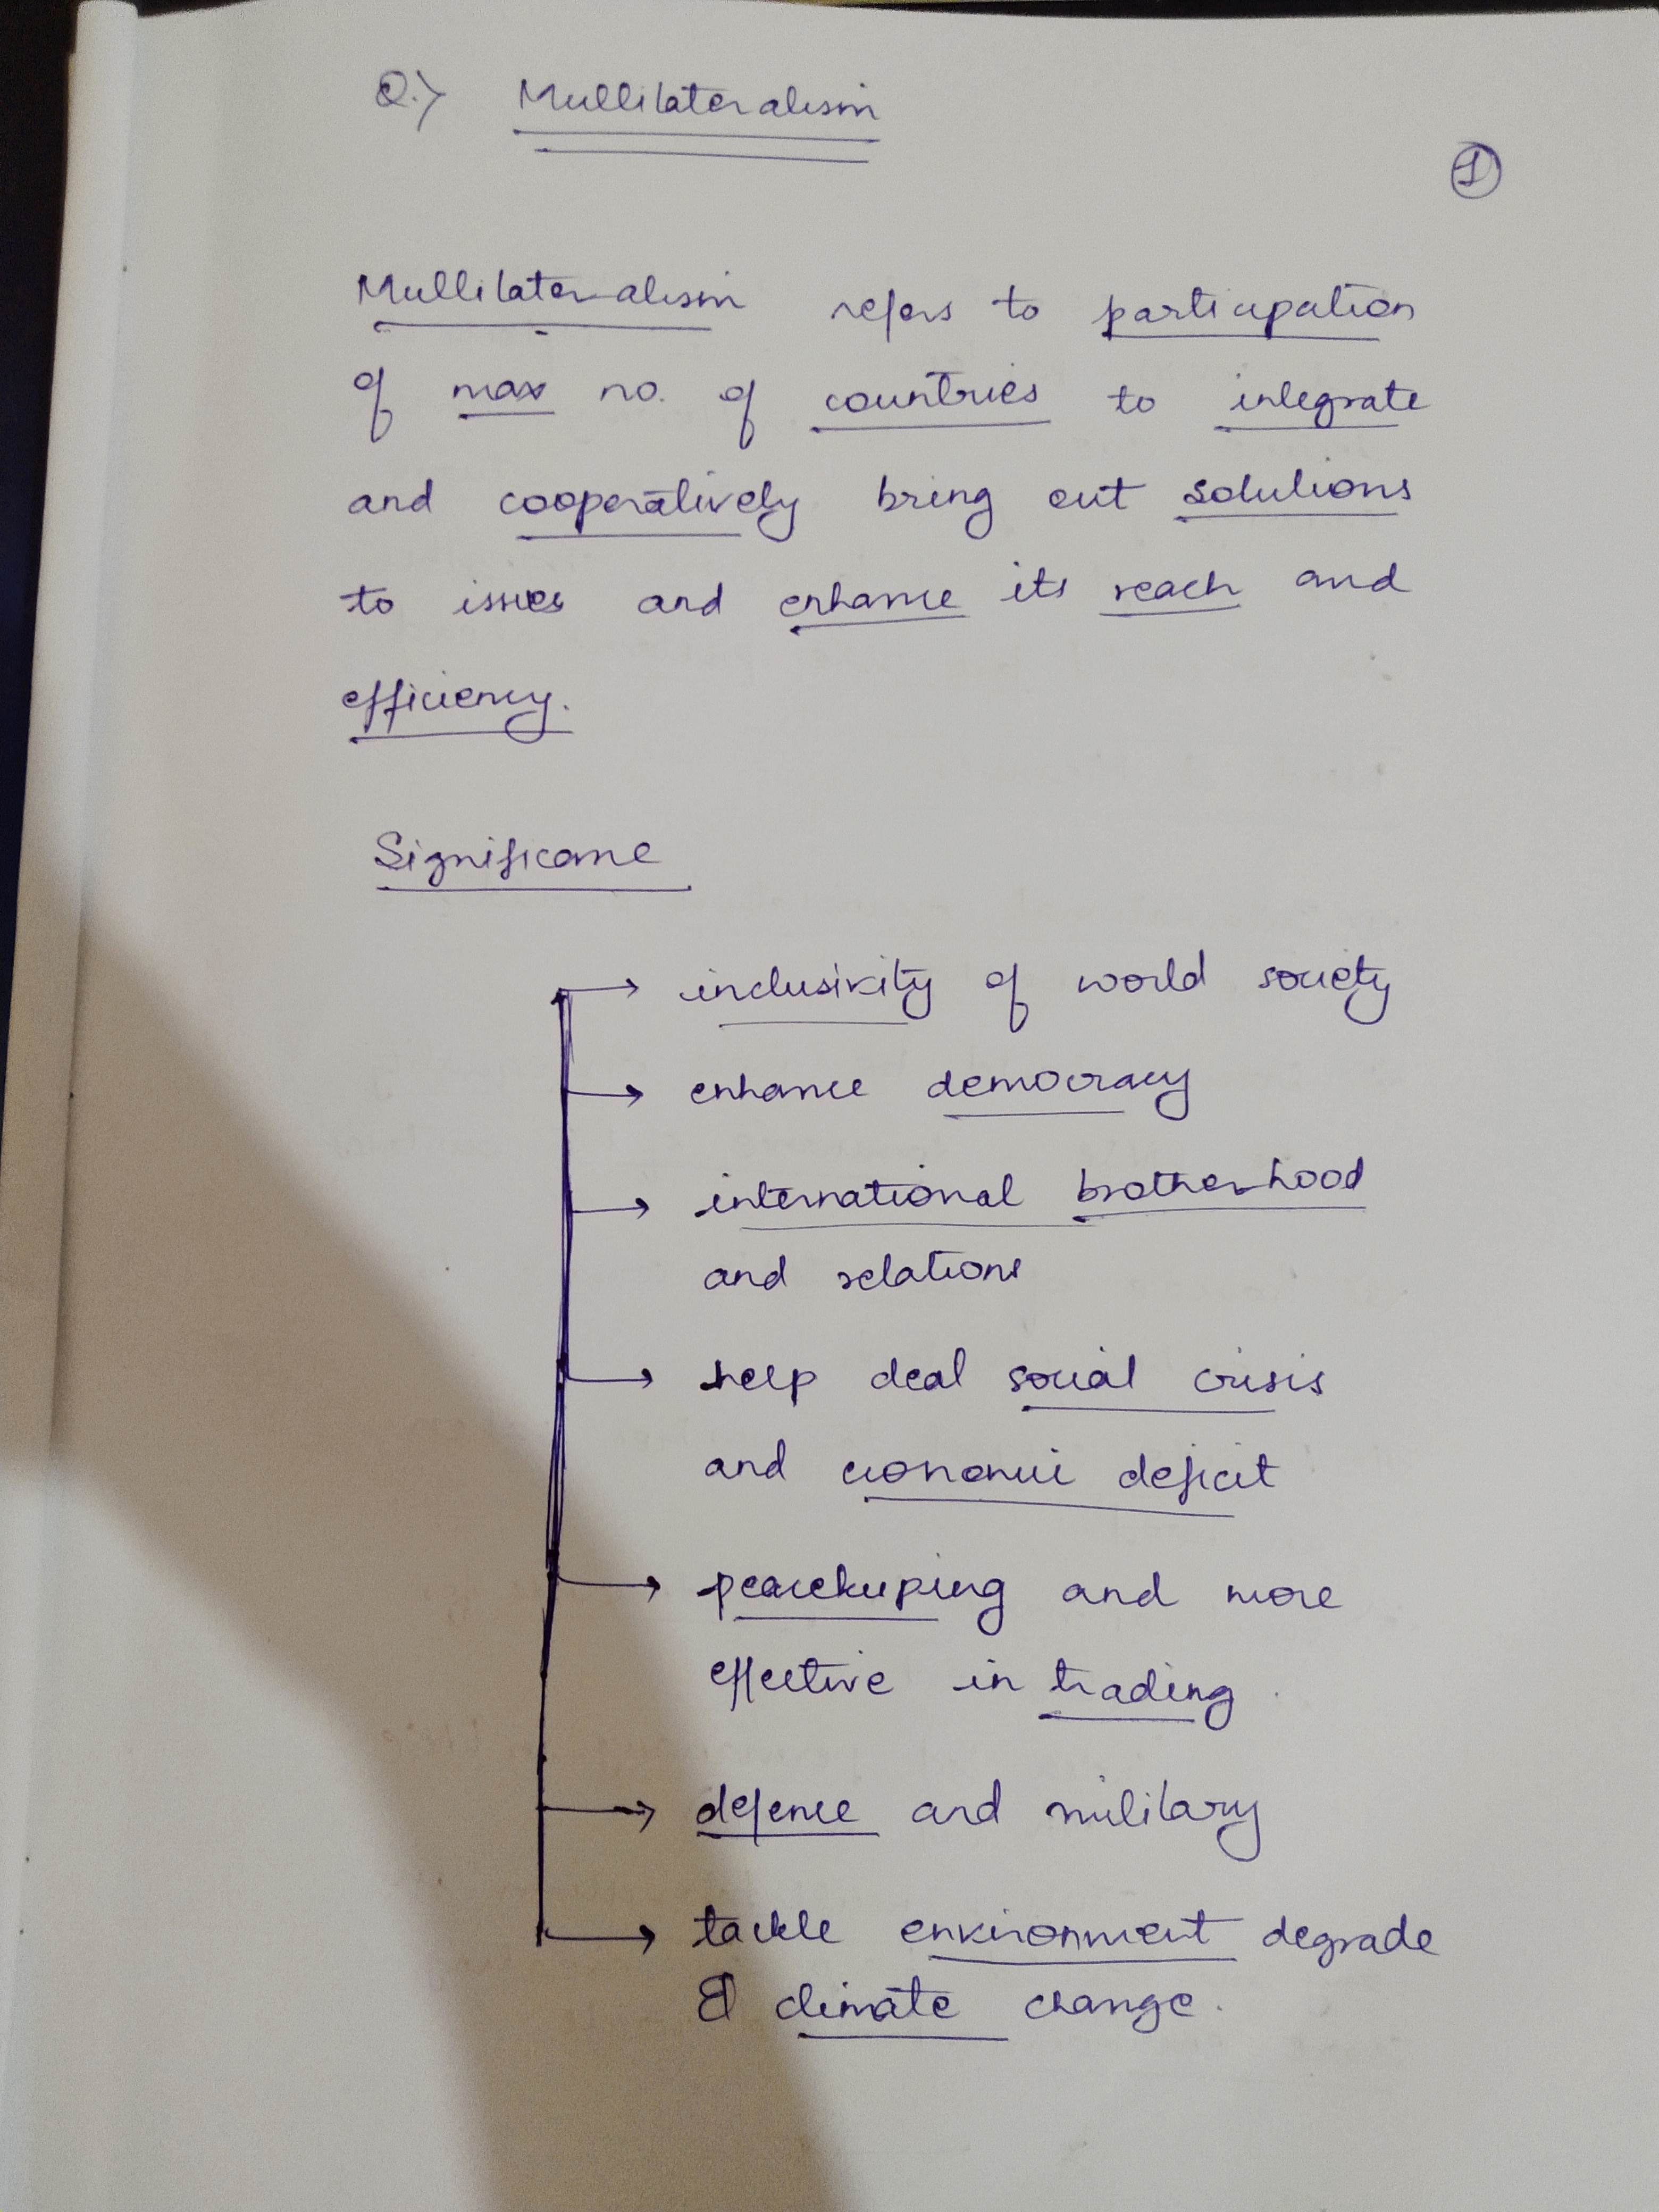 Q.) Multilateralism
1
Multilateralism refers to participation
of max no. of countries to integrate
and cooperatively bring out solutions
to issues and enhance its reach and
efficiency.
Significance
→ inclusivity of world society
→ enhance democracy
→ international brotherhood
and relations
→ help deal social crisis
and economic deficit
→ peacekeeping and more
effective in trading.
→ defence and military
→ tackle environment degrade
& climate change.